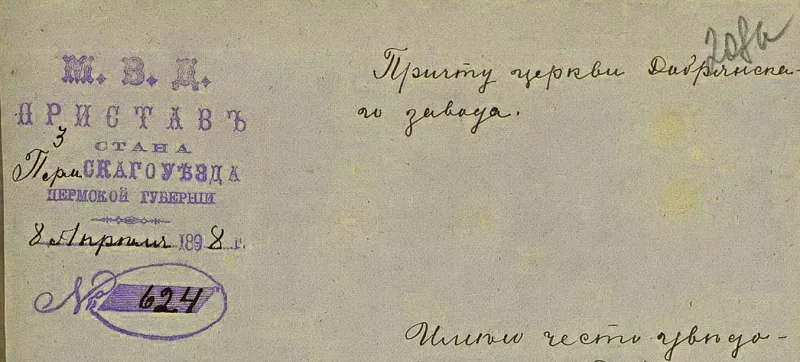 208а
М. В. Д.
ПРИСТАВЪ
3
СТАНА
ПермСКАГО УѢЗДА
ПЕРМСКОЙ ГУБЕРНІИ
8 Апрѣля 1898 г.
№ 624
Причту церкви Добрянска-
го завода.
Имѣю честь увѣдо-